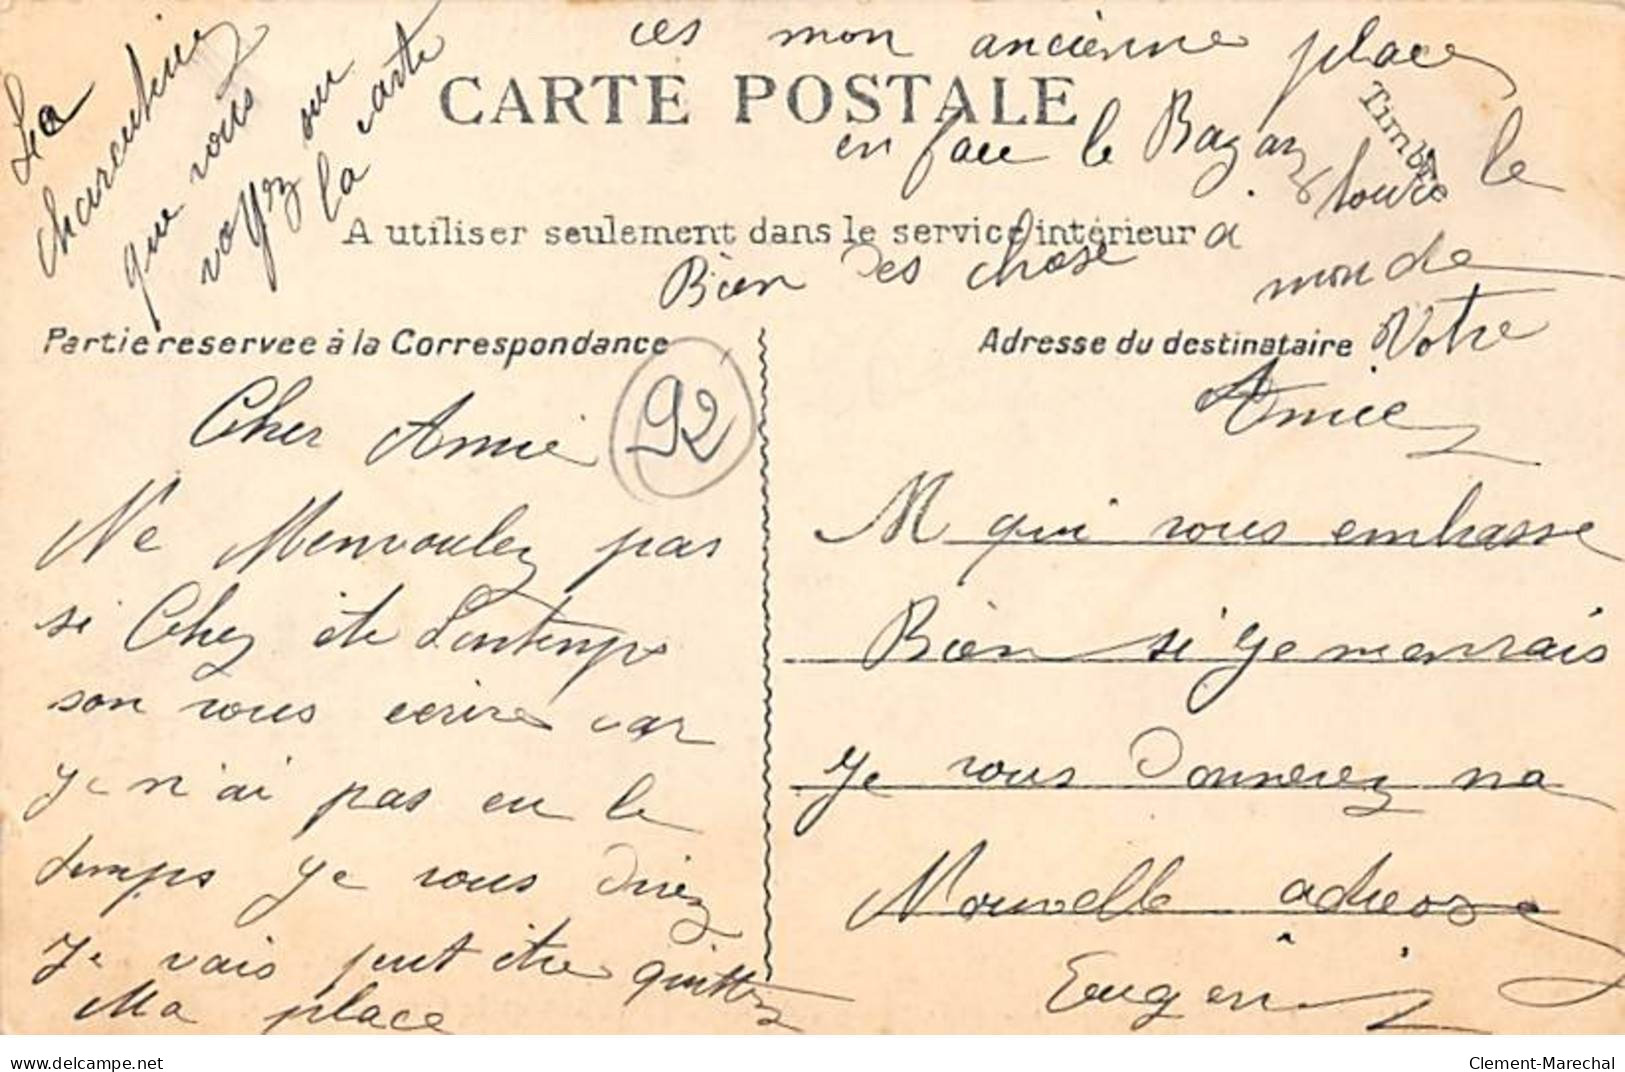 La
charcuterie
que vous
voyez sur
la carte
ces mon ancienne place
en face le Bazar
CARTE POSTALE
Timbre
A utiliser seulement dans le service intérieur
Bien des chose a toute le
monde
Votre
Amie
Partie reservee à la Correspondance
Adresse du destinataire
92
Cher Amie
Ne Menvoulez pas
si Chez ete Lontemps
son vous ecrire car
Je n'ai pas eu le
temps Je vous direz
Je vais peut etre quittez
Ma place
M qui vous embrasse
Bien si Je menvais
Je vous Donnerez ma
Nouvelle adresse
Eugenie
delcampe.net
Clement-Marechal